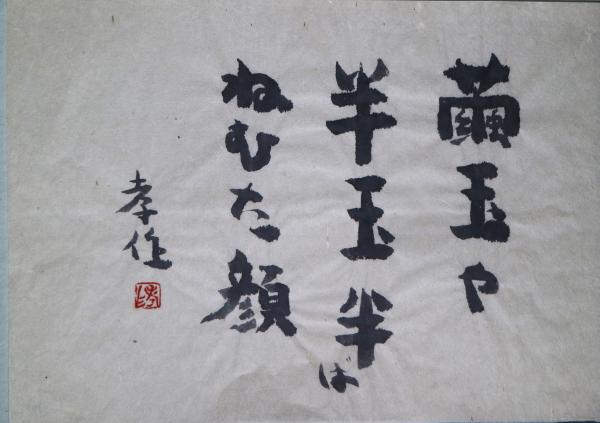 繭玉や
半玉半ば
ねむた顔
孝作